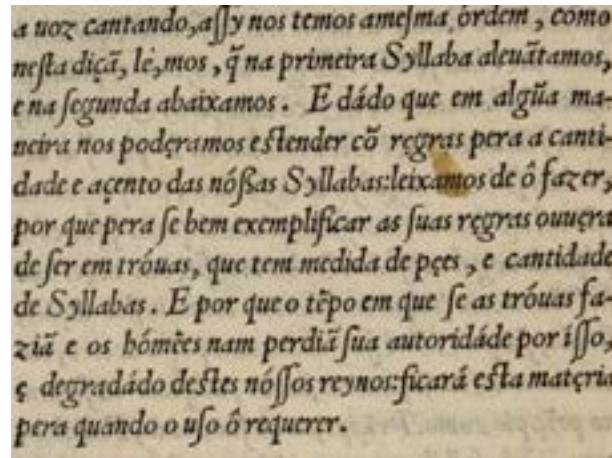 a uoz cantando,aſſy nos temos ameſma órdem , como
neſta diçã, lé,mos , q̃ na primeira Syllaba aleuãtamos,
e na ſegunda abaixamos . E dádo que em algũa ma-
neira nos podęramos eſtender cõ ręgras pera a canti-
dade e açento das nóßas Syllabas:leixamos de ô fazer,
por que pera ſe bem exemplificar as ſuas ręgras ouuęra
de ſer em tróuas, que tem medida de pęes , e cantidade
de Syllabas . E por que o tẽpo em que ſe as tróuas fa-
ziã e os hómẽes nam perdiã ſua autoridáde por iſſo,
ę degradádo deſtes nóſſos reynos:ficará eſta matęria
pera quando o uſo ô requerer.